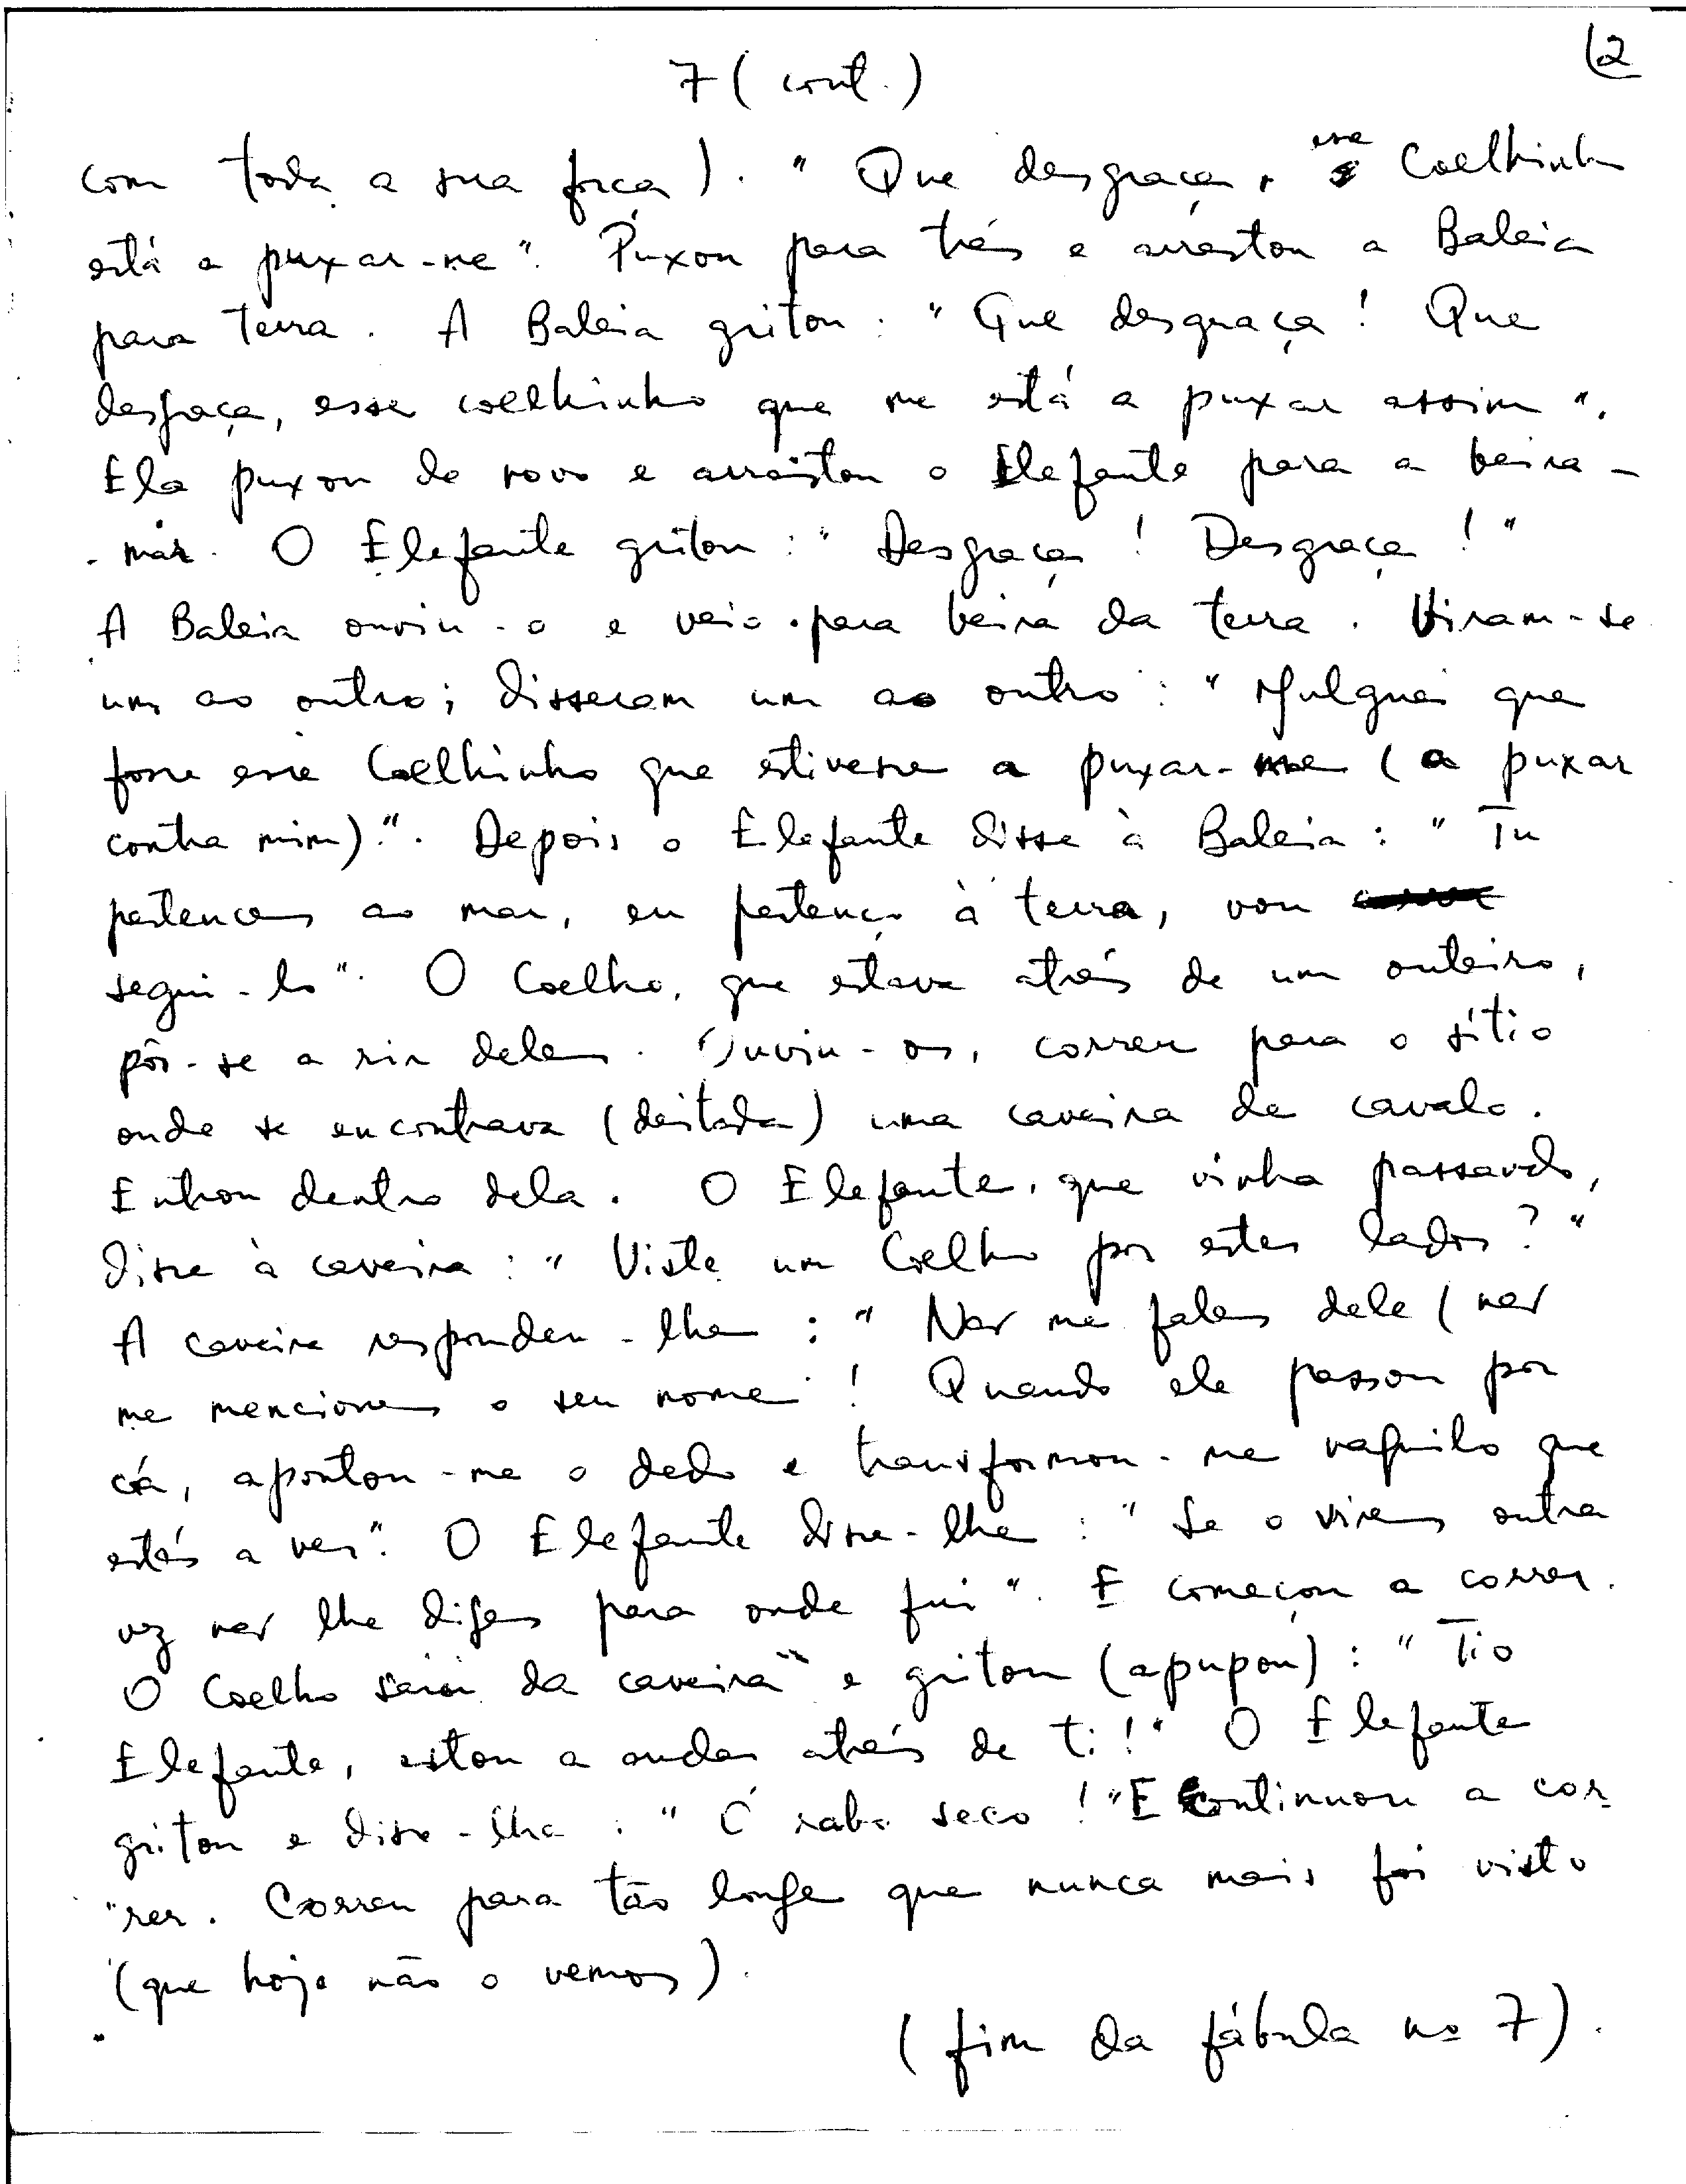 12
7 (cont.)
com toda a sua força). "Que desgraça, esse Coelhinho
está a puxar-me". Puxou para trás e arrastou a Baleia
para terra. A Baleia gritou: "Que desgraça! Que
desgraça, esse coelhinho que me está a puxar assim".
Ela puxou de novo e arrastou o Elefante para a beira-
-mar. O Elefante gritou: "Desgraça! Desgraça!"
A Baleia ouviu-o e veio para beira da terra. Viram-se
um ao outro; disseram um ao outro: "Julguei que
fosse esse Coelhinho que estivesse a puxar-me (a puxar
contra mim)". Depois o Elefante disse à Baleia: "Tu
pertences ao mar, eu pertenço à terra, vou
segui-lo". O Coelho, que estava atrás de um outeiro,
pôs-se a rir deles. Ouviu-os, correu para o sítio
onde se encontrava (deitada) uma caveira de cavalo.
Entrou dentro dela. O Elefante, que vinha passando,
disse à caveira: "Viste um Coelho por estes lados?"
A caveira respondeu-lhe: "Não me fales dele (não
me menciones o seu nome! Quando ele passou por
cá, apontou-me o dedo e transformou-me naquilo que
estás a ver". O Elefante disse-lhe: "Se o vires outra
vez não lhe digas para onde fui". E começou a correr.
O Coelho saiu da caveira e gritou (apupou): "Tio
Elefante, estou a andar atrás de ti!" O Elefante
gritou e disse-lhe: "Ó rabo seco!" E continuou a cor-
rer. Correu para tão longe que nunca mais foi visto
(que hoje não o vemos).
(fim da fábula nº 7).